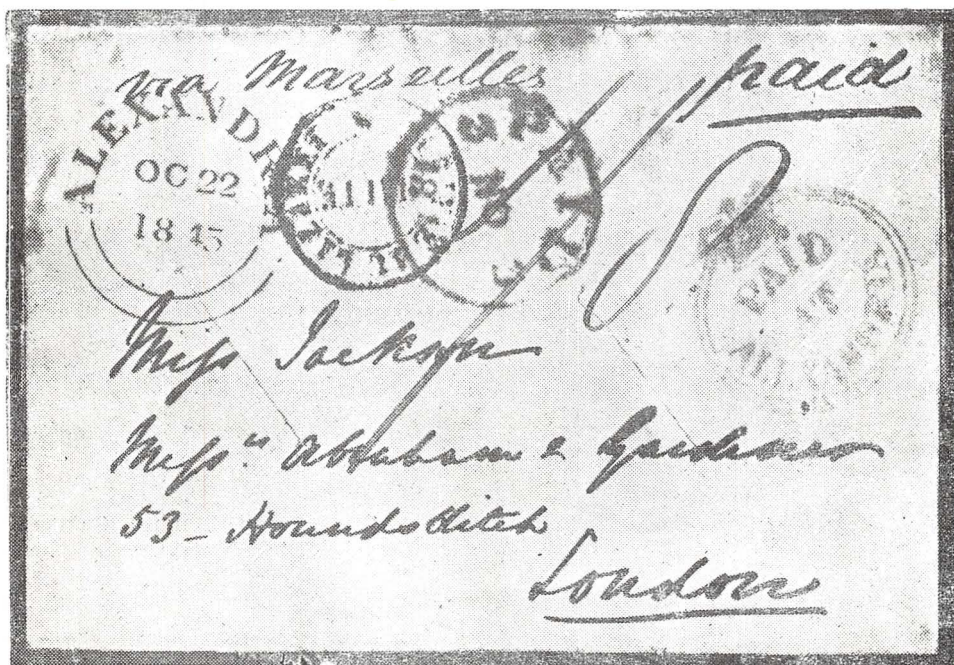 via Marseilles paid
ALEXANDRIA
OC 22
1845
PAID
AT
ALEXANDRIA
Miss Jackson
Mess.rs Abraham & Gardiner
53 - Houndsditch
London